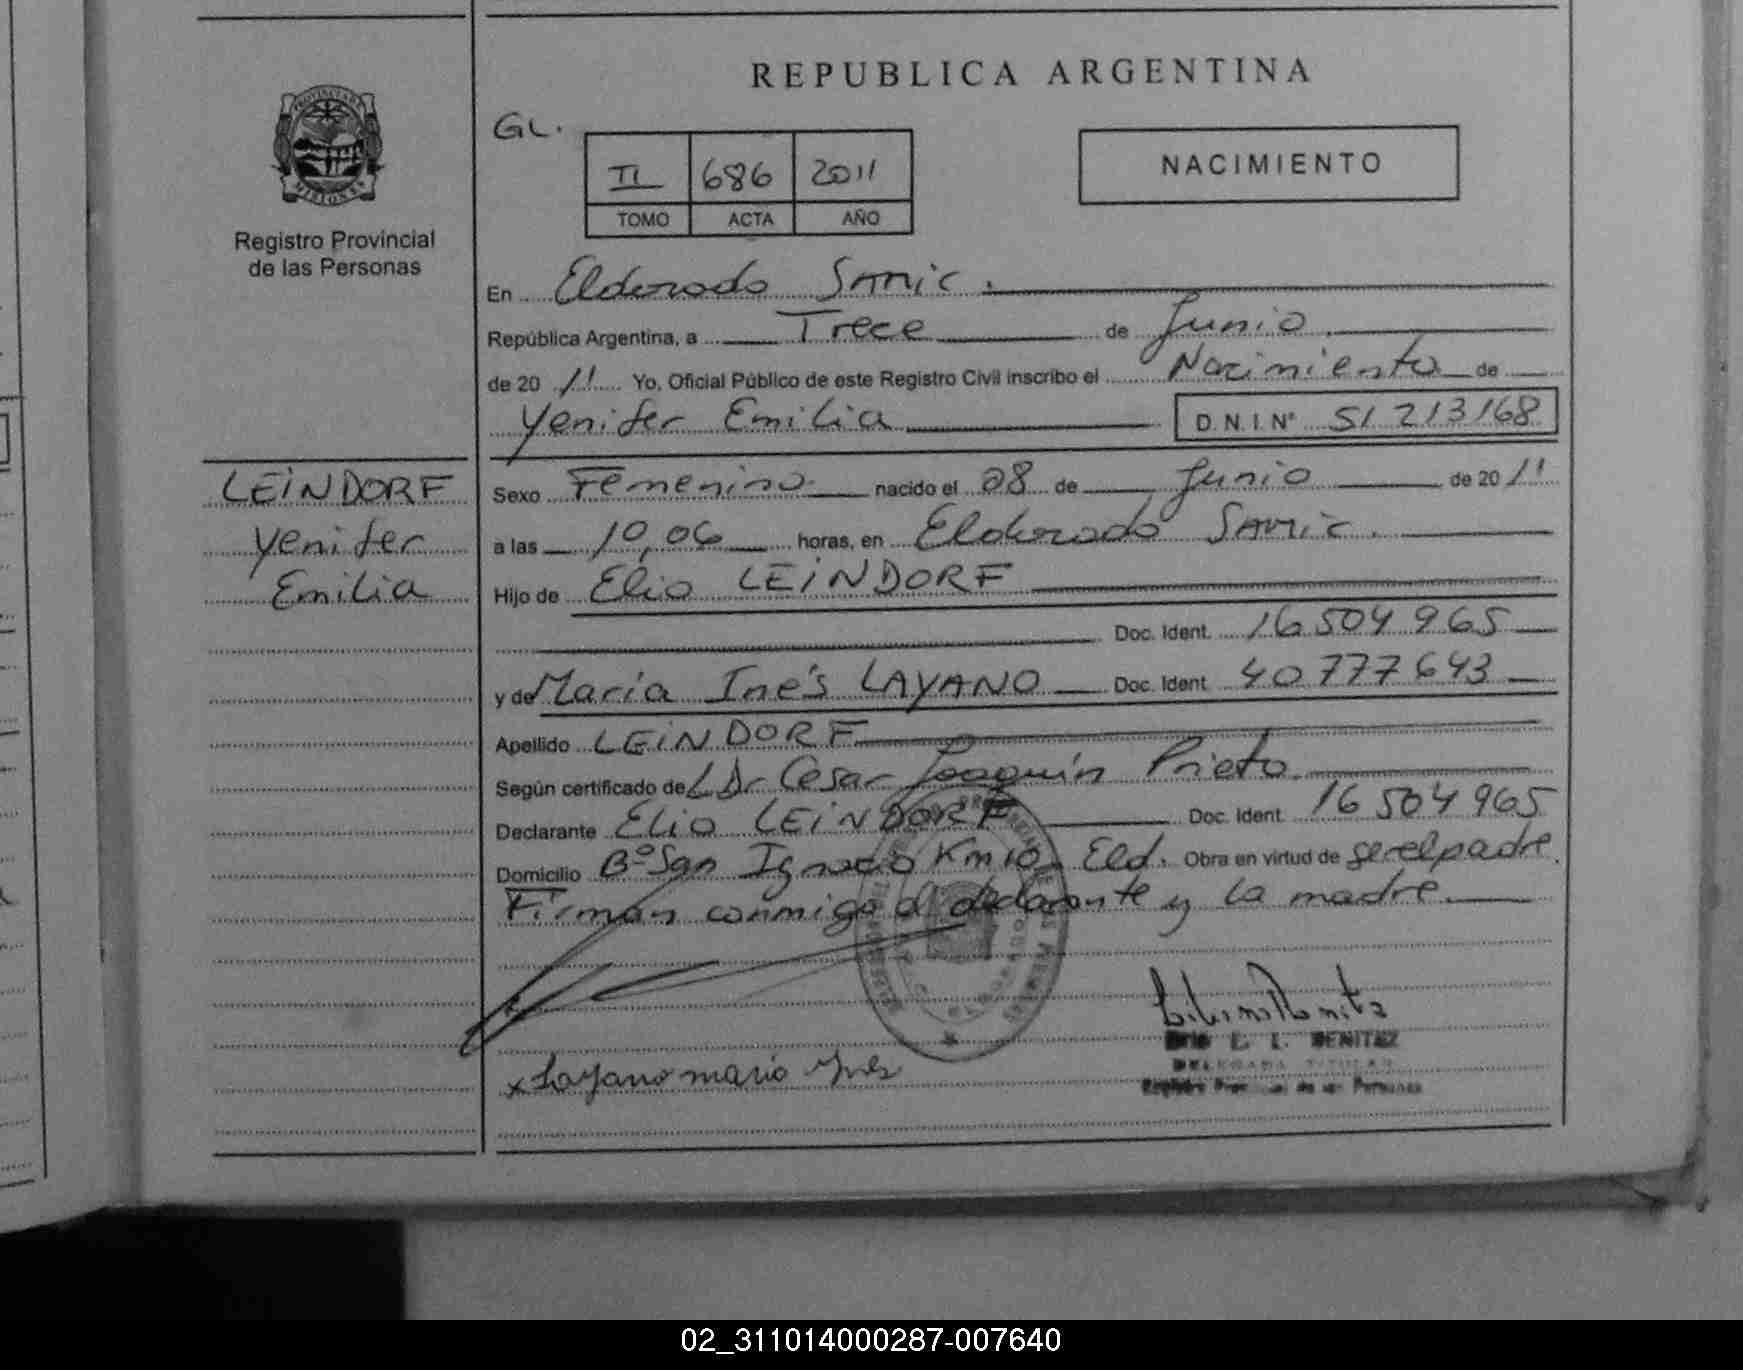 REPUBLICA ARGENTINA
PROVINCIA DE
MISIONES
Registro Provincial
de las Personas
GL.
II 686 2011
TOMO ACTA AÑO
NACIMIENTO
En Eldorado Samic.
República Argentina, a Trece de Junio
de 20 11 Yo, Oficial Público de este Registro Civil inscribo el Nacimiento de
Yenifer Emilia D.N.I. N° 51 213168
LEINDORF
Yenifer
Emilia
Sexo Femenino nacido el 08 de Junio de 20 11
a las 10,06 horas, en Eldorado Samic.
Hijo de Elio LEINDORF
Doc. Ident. 16 504 965
y de Maria Inés LAYANO Doc. Ident. 40 777 643
Apellido LEINDORF
Según certificado de Dr Cesar Joaquin Prieto
Declarante Elio LEINDORF Doc. Ident. 16 504 965
Domicilio B° San Ignacio Km 10 Eld. Obra en virtud de ser el padre.
Firman conmigo el declarante y la madre.
x Layano maria Ines
L. L. BENITEZ
DELEGADA TITULAR
Registro Provincial de las Personas
02_311014000287-007640